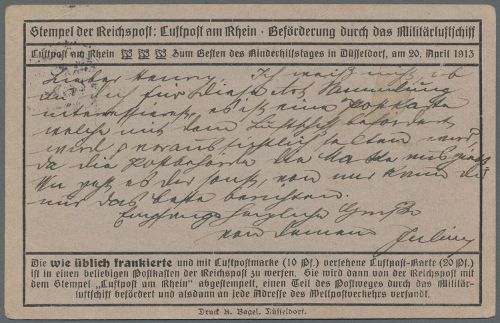 Stempel der Reichspost: Luftpost am Rhein · Beförderung durch das Militärluftschiff
Luftpost am Rhein Zum Besten des Kinderhilfstages in Düsseldorf, am 20. April 1913
Lieber Henry. Ich weiß nicht ob
du dich für diese Art Sammlung
interessierst, es ist eine Postkarte
welche mit dem Luftschiff befördert
wird
da die Postbehörde die Marke
geht es dir sonst, von mir kann ich
nur das beste berichten.
Grüße
von Deinem Julius
Die wie üblich frankierte und mit Luftpostmarke (10 Pf.) versehene Luftpost-Karte (20 Pf.)
ist in einen beliebigen Postkasten der Reichspost zu werfen. Sie wird dann von der Reichspost mit
dem Stempel „Luftpost am Rhein“ abgestempelt, einen Teil des Postweges durch das Militär-
luftschiff befördert und alsdann an jede Adresse des Weltpostverkehrs versandt.
Druck A. Bagel, Düsseldorf.